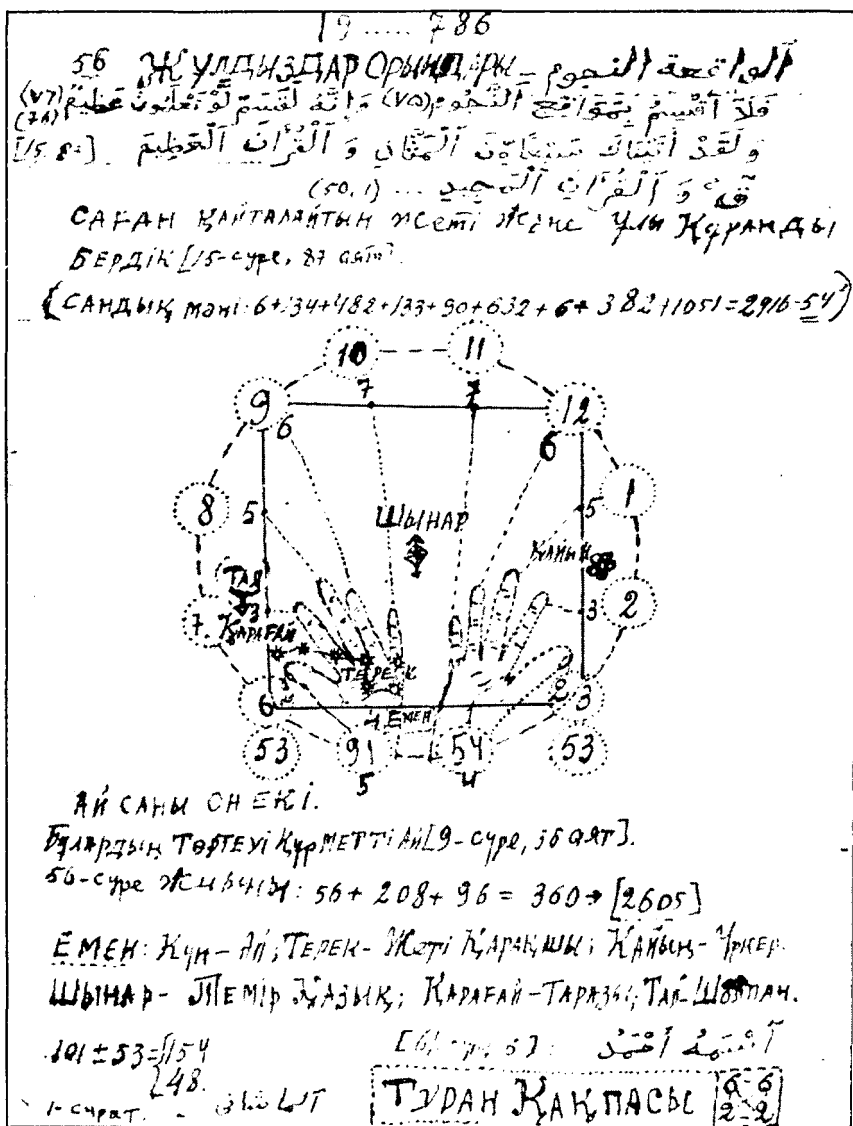 19 ..... 786
56 ЖҰЛДЫЗДАР ОРЫНДАРЫ - الواقعة النجوم
فَلَا أُقْسِمُ بِمَوَاقِعِ النُّجُومِ (٧٥) وَإِنَّهُ لَقَسَمٌ لَّوْ تَعْلَمُونَ عَظِيمٌ
وَلَقَدْ آتَيْنَاكَ سَبْعًا مِّنَ الْمَثَانِي وَ الْقُرْآنَ الْعَظِيمَ
ق وَ الْقُرْآنِ الْمَجِيدِ ... (50,1)
САҒАН ҚАЙТАЛАЙТЫН Жеті Және Ұлы ҚҰРАНДЫ
БЕРДІК [15-сүре, 87 аят].
(САНДЫҚ мәні: 6+134+482+133+90+632+6+382+1051=2916-54)
10 11
9 7 7 12
6 6
8 5 5 1
ШЫНАР
ҚАЙЫҢ
ТАЛ
7 3 3 2
ҚАРАҒАЙ
ТЕРЕК
6 2 2 3
1 ЕМЕН 1
53 91 54 53
5 4
АЙ САНЫ ОН ЕКІ.
БҰЛАРДЫҢ ТӨРТЕУІ ҚҰРМЕТТІ АЙ [9-сүре, 36 аят].
56-сүре Жиыны: 56 + 208 + 96 = 360 → [2605]
ЕМЕН: Күн - Ай; ТЕРЕК - Жеті ҚАРАҚШЫ; ҚАЙЫҢ - Үркер.
ШЫНАР - ТЕМІР ҚАЗЫҚ; ҚАРАҒАЙ - ТАРАЗЫ; ТАЛ - ШОЛПАН.
101 ± 53 = 154
48.
[61-сүре, 6]: اسْمُهُ أَحْمَدُ
1-сурет.
ТҰРАН ҚАҚПАСЫ 6-6
2-2